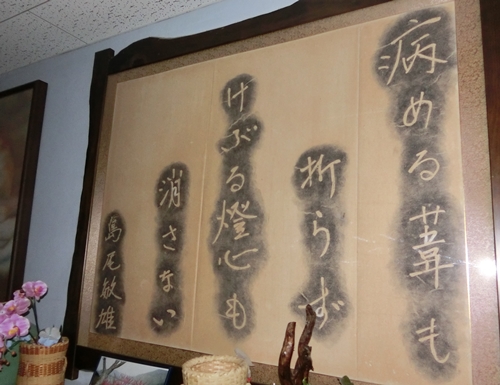 病める葦も
折らず
けぶる燈心も
消さない
島尾敏雄